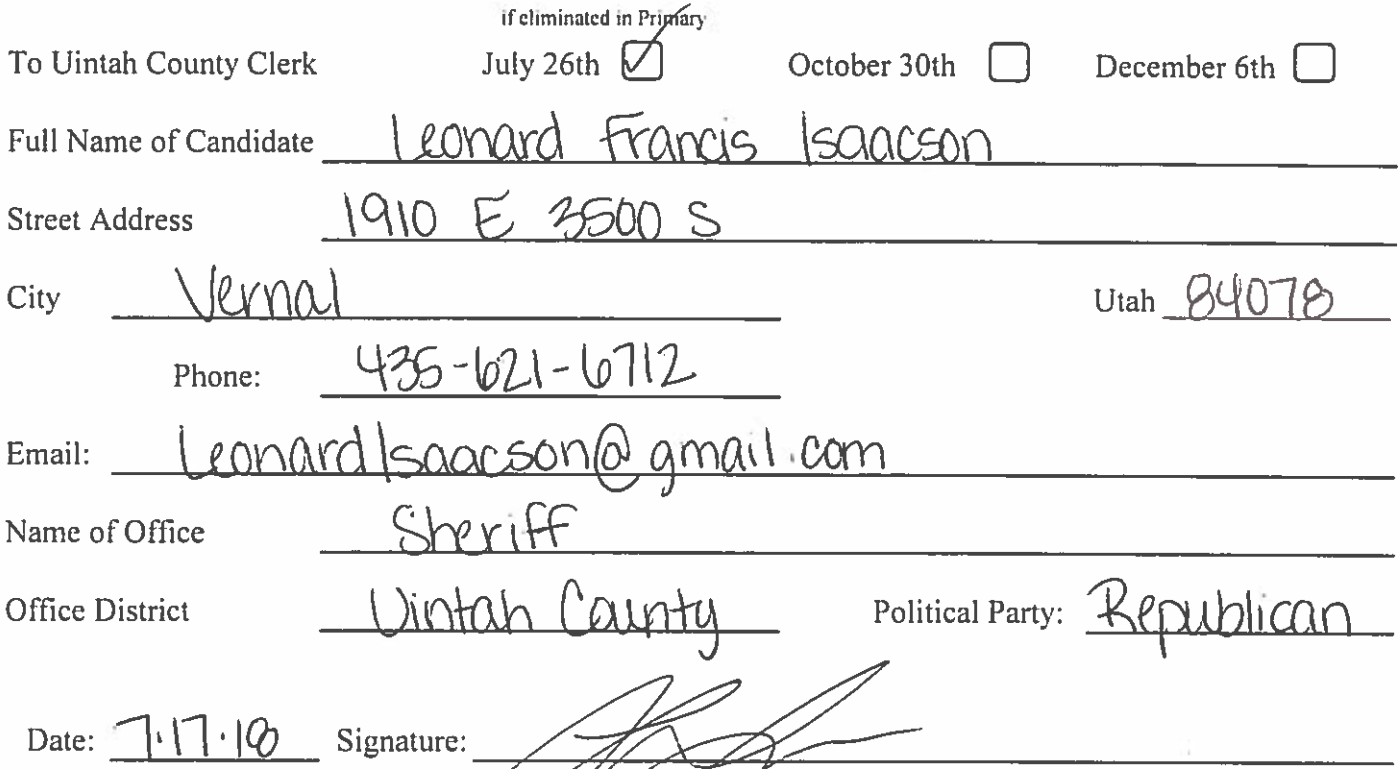 if eliminated in Primary
To Uintah County Clerk July 26th October 30th December 6th
Full Name of Candidate Leonard Francis Isaacson
Street Address 1910 E 3500 S
City Vernal Utah 84078
Phone: 435-621-6712
Email: LeonardIsaacson@gmail.com
Name of Office Sheriff
Office District Uintah County Political Party: Republican
Date: 7.17.18 Signature: